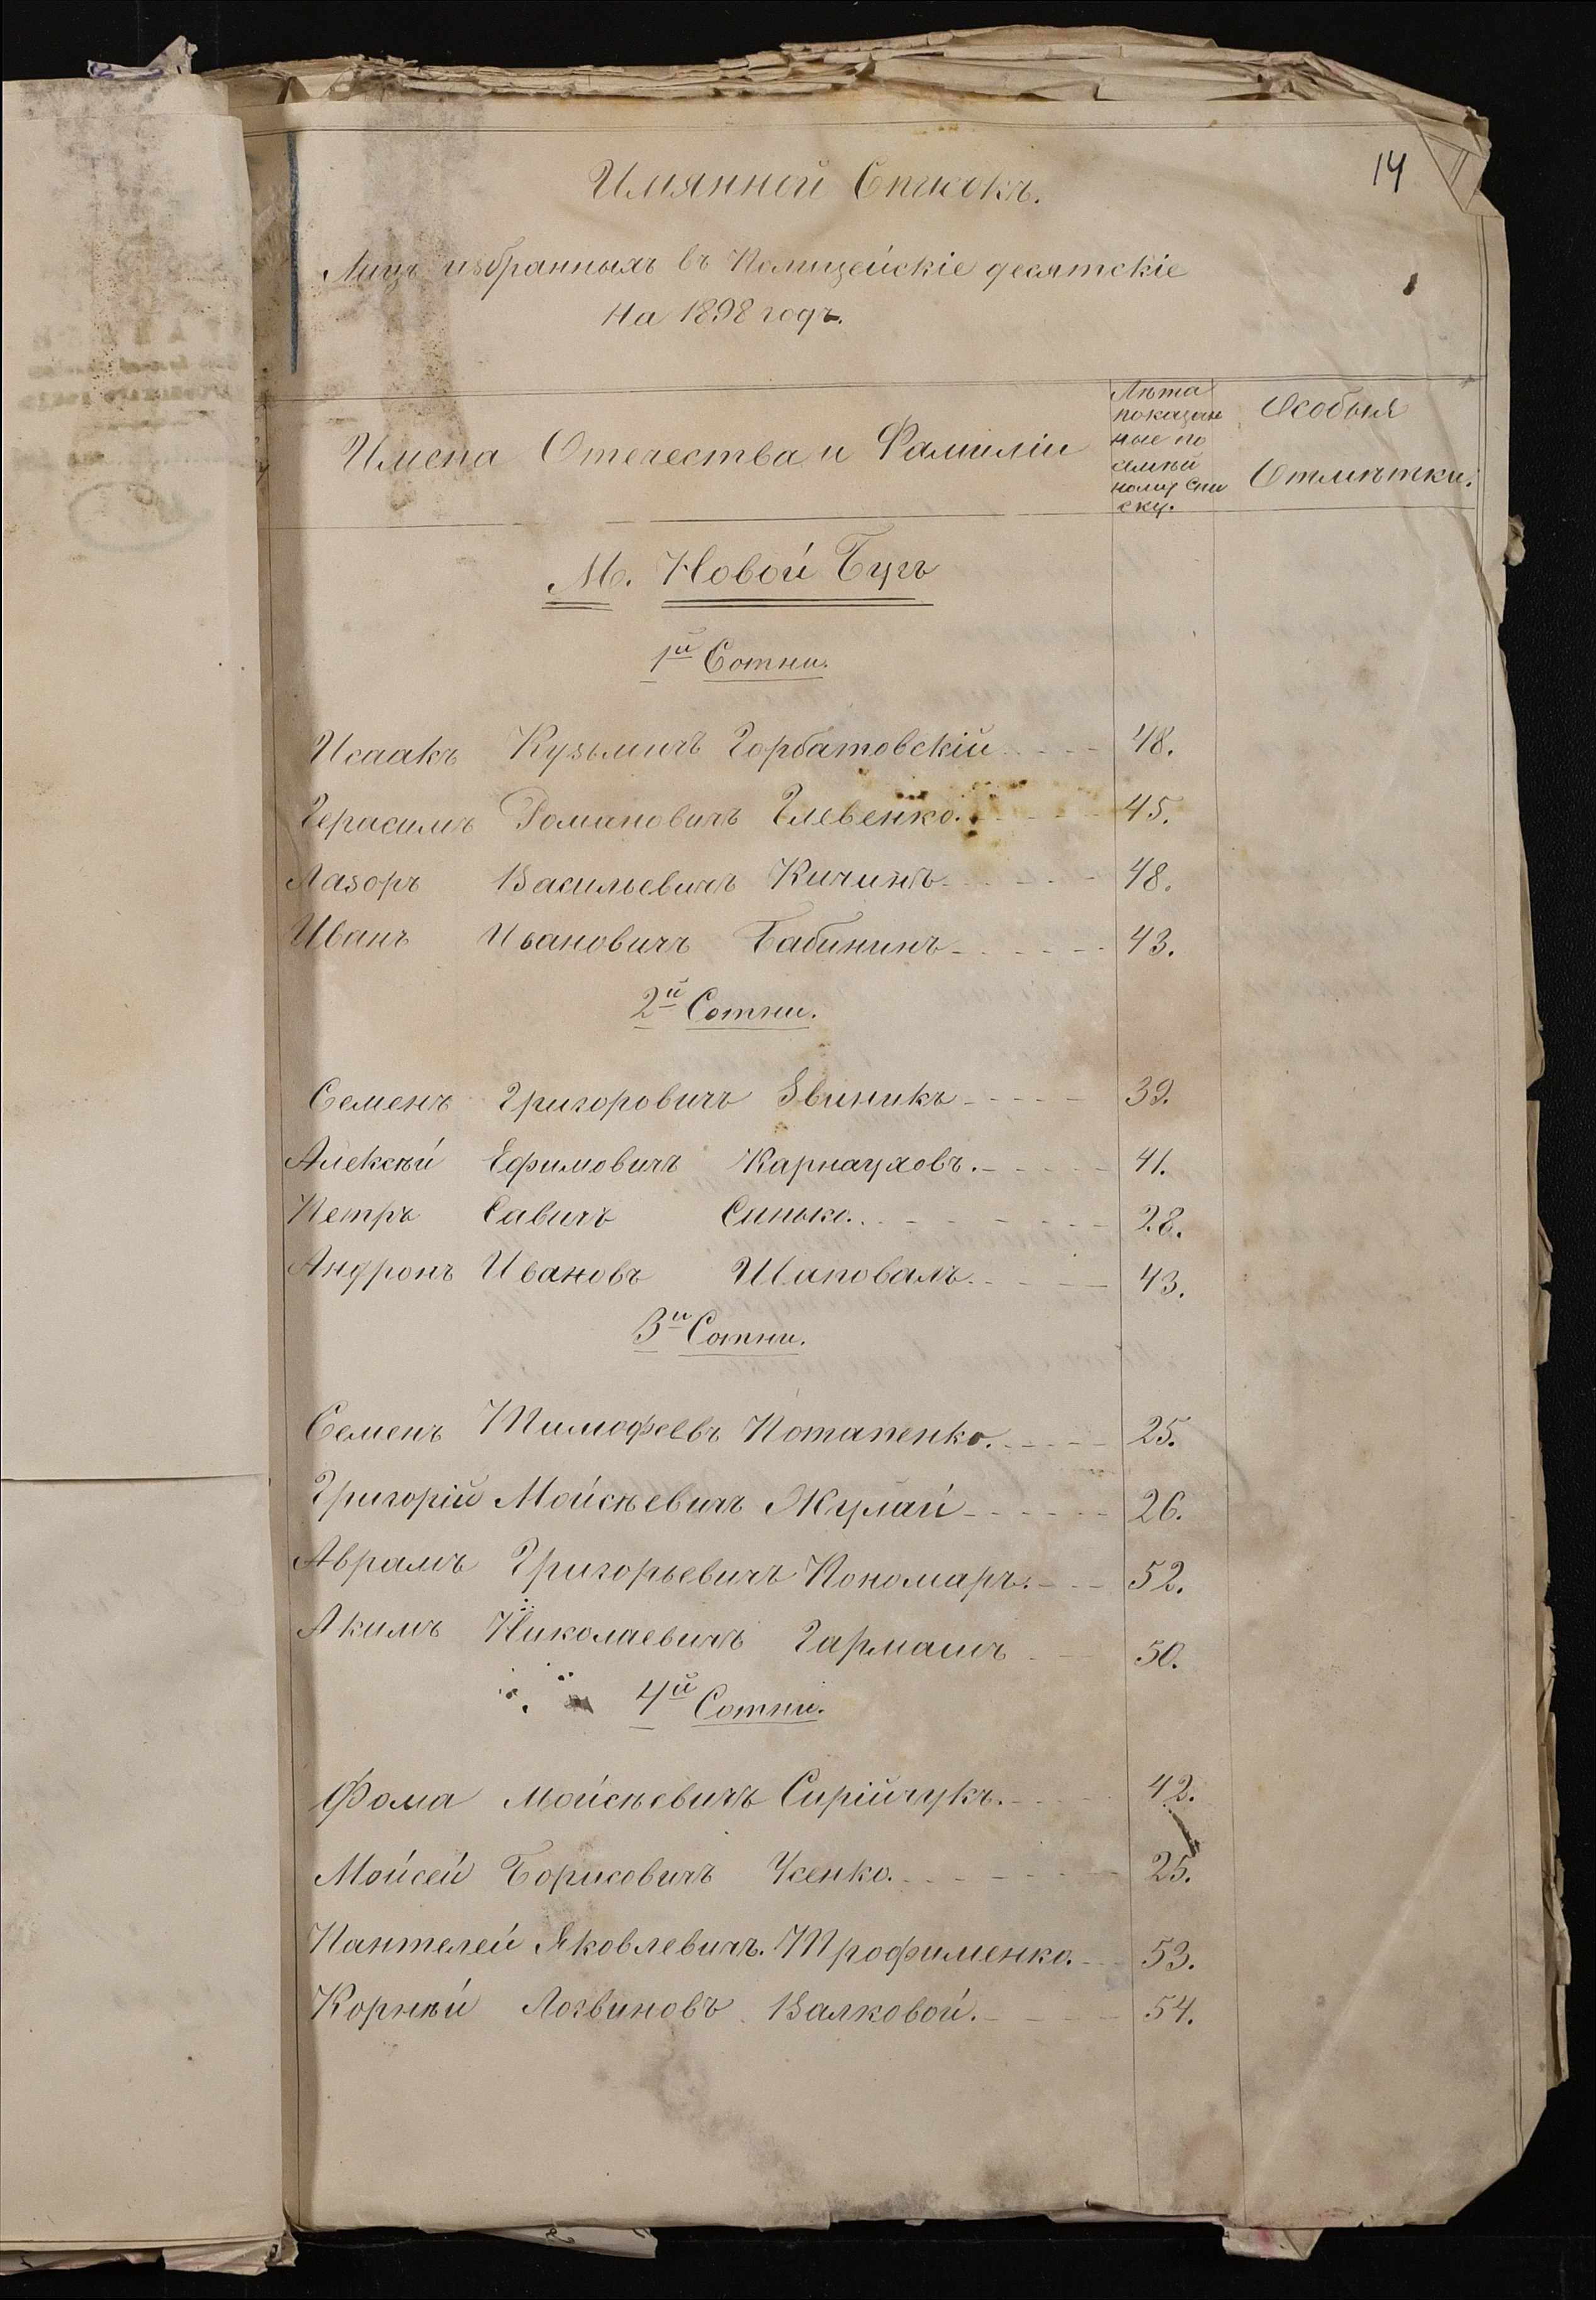 14
Имянной Списокъ.
Лицъ избранныхъ въ Полицейскіе десятскіе
на 1898 годъ.
Имена Отечества и Фамиліи
Лѣта
показан
ные по
семей
ному Спи
ску.
Особыя
Отмѣтки.
М. Новой Бугъ
1й Сотни.
Исаакъ Кузьмичъ Горбатовскій 48.
Герасимъ Романовичъ Глевенко. 45.
Лазоръ Васильевичъ Кичинъ 48.
Иванъ Ивановичъ Бабининъ 43.
2й Сотни.
Семенъ Григоровичъ Звиникъ 39.
Алексѣй Ефимовичъ Карнауховъ. 41.
Петръ Савичъ Синько. 28.
Андронъ Ивановъ Шаповалъ. 43.
3й Сотни.
Семенъ Тимофеевъ Потапенко. 25.
Григорій Мойсѣевичъ Жулай 26.
Аврамъ Григорьевичъ Пономаръ. 52.
Акимъ Николаевичъ Гармашъ 50.
4й Сотни.
Фома Мойсѣевичъ Сирійчукъ. 42.
Мойсей Борисовичъ Усенко. 25.
Пантелей Яковлевичъ. Трофименко. 53.
Корнѣй Логвиновъ Валковой. 54.